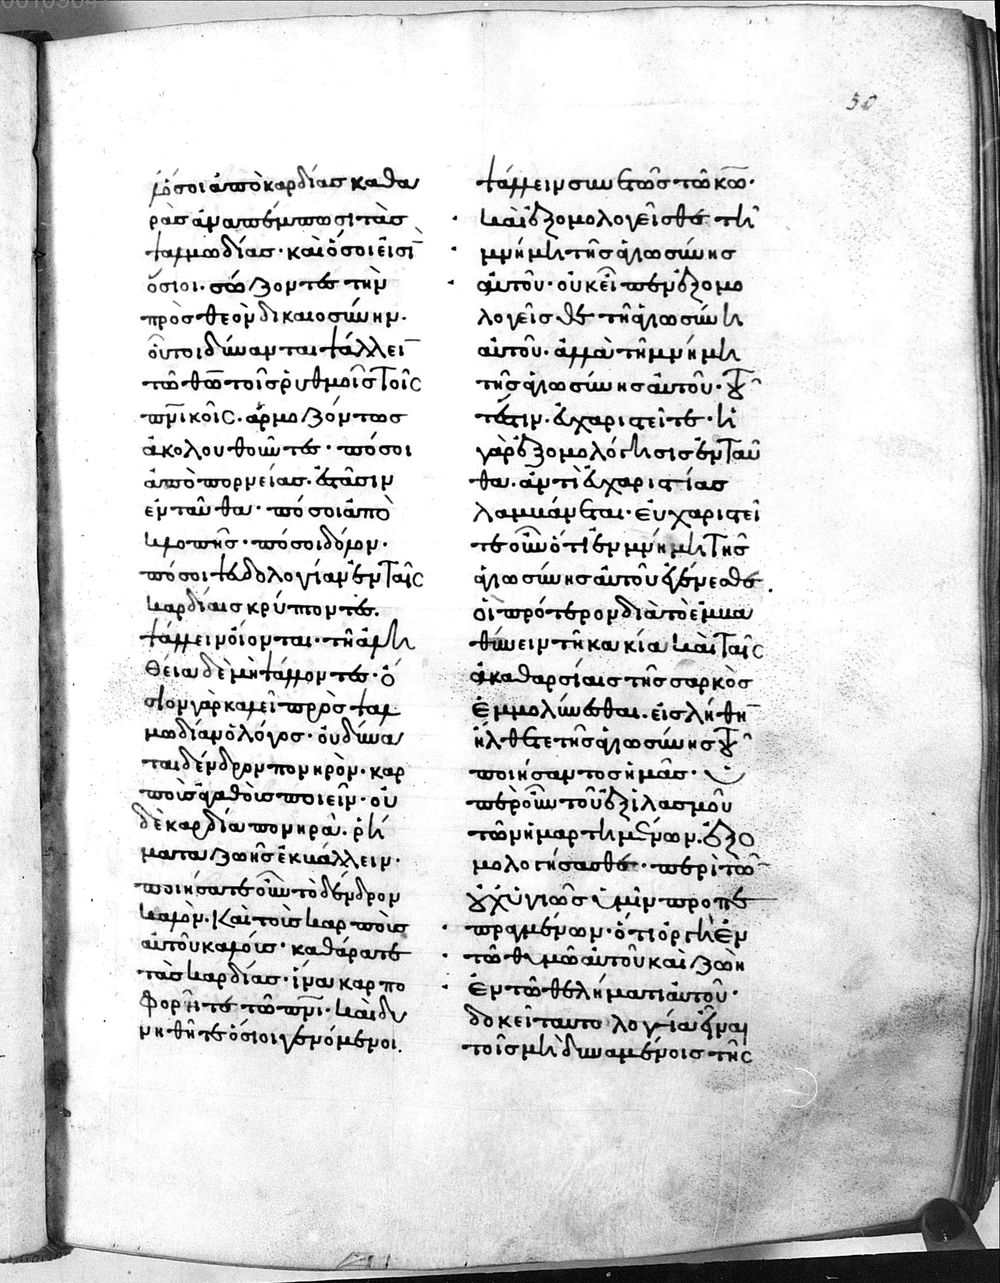 λ' ὅσοι ἀπὸ καρδίας καθα
ρᾶς ἀναπέμπωσι τὰς
ψαλμωδίας· καὶ ὅσοι εἰσὶ
ὅσιοι· σώζοντες τὴν
πρὸς θεὸν δικαιοσύνην·
οὗτοι δύνανται ψάλλει
τῶ θω τοῖς ῥυθμοῖς τοῖς
πνικοῖς· ἁρμοζόντως
ἀκολουθοῦντες· πόσοι
ἀπὸ πορνείας ἑστᾶσιν
ἐνταῦθα· πόσοι ἀπὸ
κλοπῆς· πόσοι δόλον·
πόσοι ψεδολογίαν ἐν ταῖς
καρδίαις κρύπτοντες·
ψάλλειν οἴονται· τῆ ἀλη
θεία δὲ μὴ ψάλλοντες· ὅ
σιον γὰρ καλεῖ πρὸς ψαλ
μωδίαν ὁ λόγος· οὐ δύνα
ται δένδρον πονηρὸν· καρ
ποὺς ἀγαθοὺς ποιεῖν· οὐ
δὲ καρδία πονηρὰ· ῥή
ματα ζωῆς ἐκβάλλειν·
ποιήσατε οὖν τὸ δένδρον
καλὸν· καὶ τοὺς καρποὺς
αὐτοῦ καλούς· καθάρατε
τὰς καρδίας· ἵνα καρπο
φορῆτε τῶ πνι· καὶ δυ
νηθῆτε ὅσιοι γενόμενοι.
ψάλλειν συνετῶς τῶ κω·
καὶ ἐξομολογεῖσθε τῆ
μνήμη τῆς ἁγιωσύνης
αὐτοῦ· οὐκ εἶπεν ἐξομο
λογεῖσθε τῆ ἁγιωσύνη
αὐτοῦ· ἀλλὰ τῆ μνήμη
τῆς ἁγιωσύνης αὐτοῦ· του
τέστιν· εὐχαριστεῖτε· ἡ
γὰρ ἐξομολόγησις ἐνταῦ
θα· ἀντὶ εὐχαριστίας
λαμβάνεται· εὐχαριστεῖ
τε οὖν ὅτι ἐν μνήμη τῆς
ἁγιωσύνης αὐτοῦ ἐγένεσθε
οἱ πρότερον διὰ τὸ ἐμβα
θύνειν τῆ κακία καὶ ταῖς
ἀκαθαρσίαις τῆς σαρκὸς
ἐμμολύνεσθαι· εἰς λήθη
ἤλθετε τῆς ἁγιωσύνης του
ποιήσαντος ἡμᾶς· ὑ
πὲρ οὖν τοῦ ἐξιλασμοῦ
τῶν ἡμαρτημένων· ἐξο
μολογήσασθε· περὶ τῶν
οὐχ ὑγιῶς ὑμῖν προπε
πραγμένων· ὅτι ὀργὴ ἐν
τῶ θυμῶ αὐτοῦ καὶ ζωὴ
ἐν τῶ θελήματι αὐτοῦ·
δοκεῖ ταυτολογία εἶναι
τοῖς μὴ δυναμένοις τῆς
50